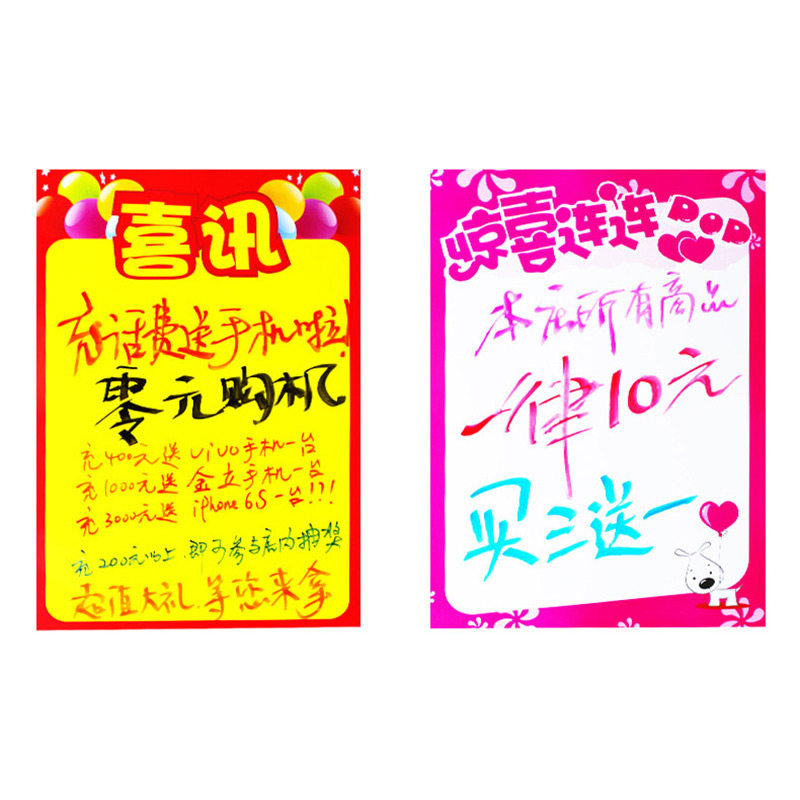 喜讯
充话费送手机啦!
零元购机
充400元送 vivo手机一台
充1000元送 金立手机一台
充3000元送 iphone 6S 一台!!!
充200元以上.即可参与店内抽奖
超值大礼.等您来拿
惊喜连连 POP
本店所有商品
一律10元
买三送一